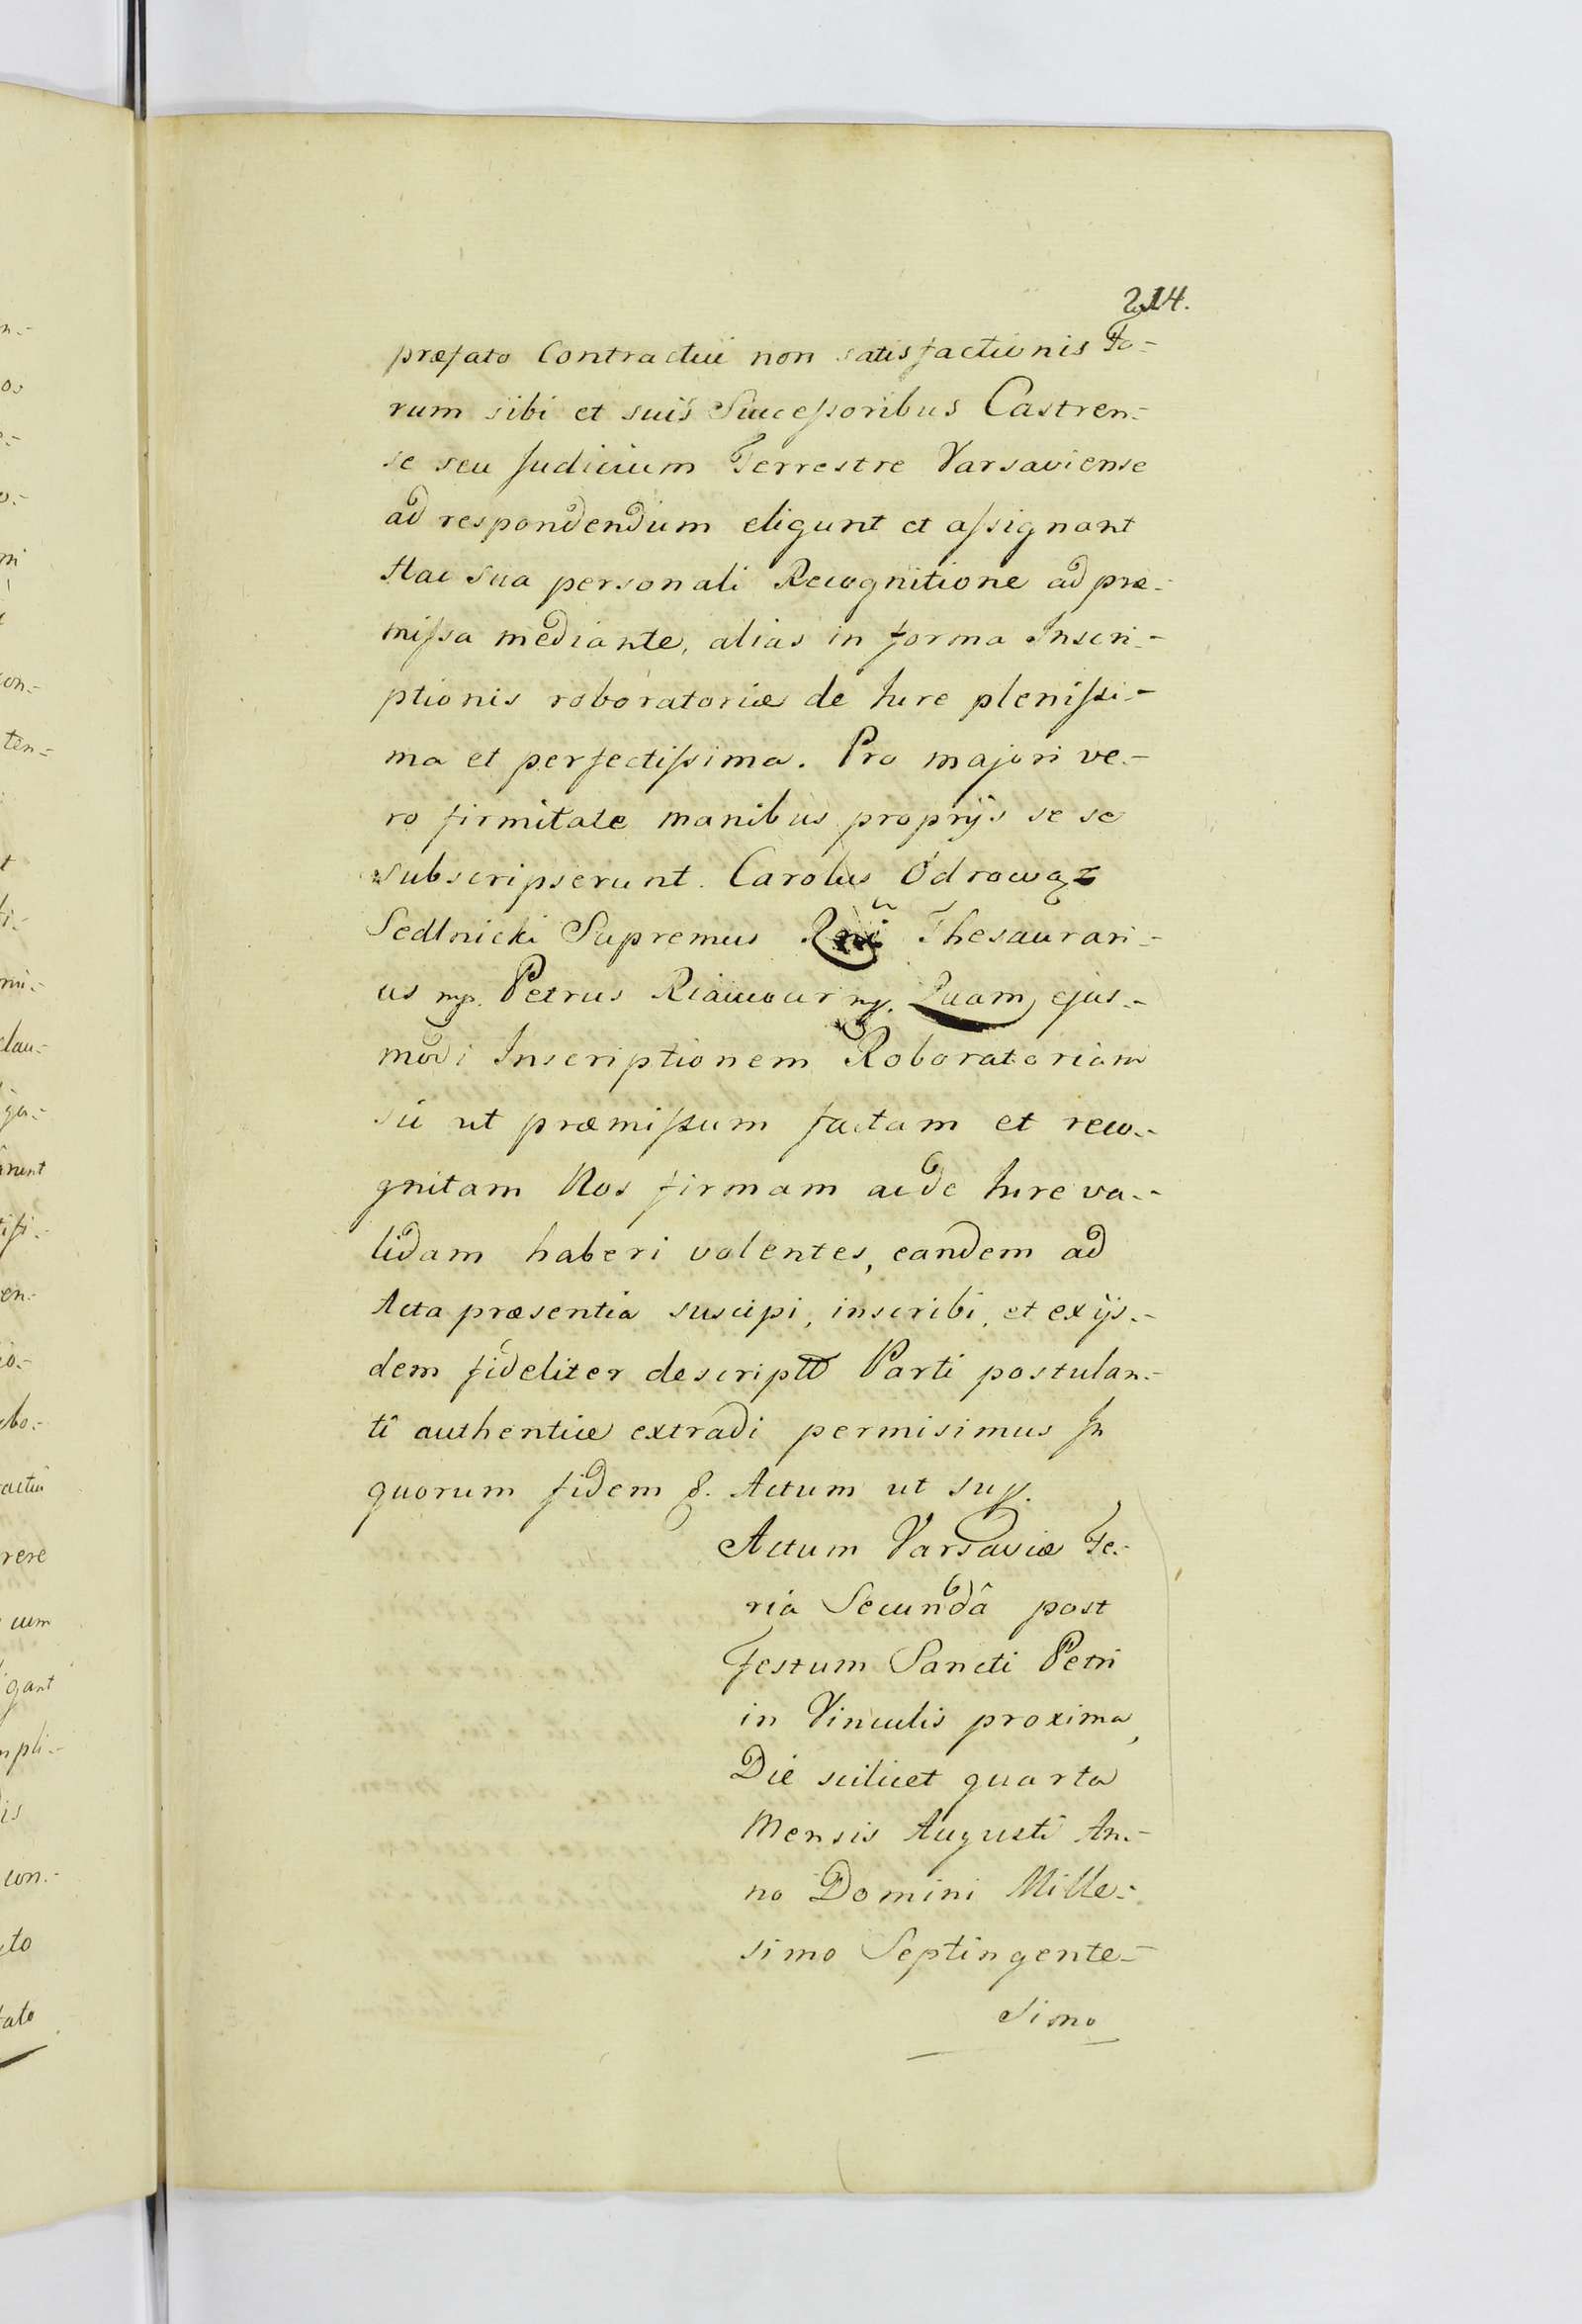 214.
præfato Contractui non satisfactionis Fo-
rum sibi et suis Successoribus Castren-
se seu Judicium Terrestre Varsaviense
ad respondendum eligunt et assignant
Hac sua personali Recognitione ad præ-
missa mediante, alias in forma Inscri-
ptionis roboratoriæ de Jure plenissi-
ma et perfectissima. Pro majori ve-
ro firmitate manibus proprijs se se
subscripserunt. Carolus Odrowąz
Sedlnicki Supremus Rni Thesaurari-
us mp. Petrus Riaucour mp. Quam ejus-
modi Inscriptionem Roboratoriam
sic ut præmissum factam et reco-
gnitam Nos firmam ac de Jure va-
lidam haberi volentes, eandem ad
Acta præsentia suscipi, inscribi, et ex ijs-
dem fideliter descriptã Parti postulan-
ti authentice extradi permisimus In
quorum fidem &. Actum ut sup.
Actum Varsaviæ Fe-
ria Secundâ post
Festum Sancti Petri
in Vinculis proxima,
Die scilicet quarta
Mensis Augusti An-
no Domini Mille-
simo Septingente-
simo
n-
os
mi
con-
ten-
t
lau-
ga-
en-
cbo-
actui
rere
cum
gant
mpli-
is
con-
to
tato